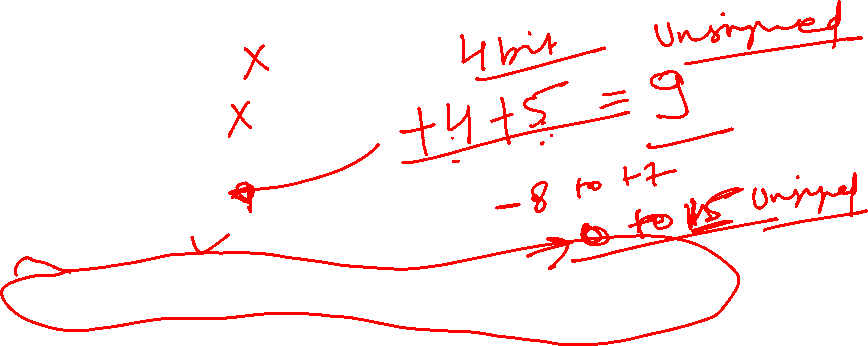 x
4 bit Unsigned
x
+4+5 = 9
-8 to +7
0 to 15 Unsigned